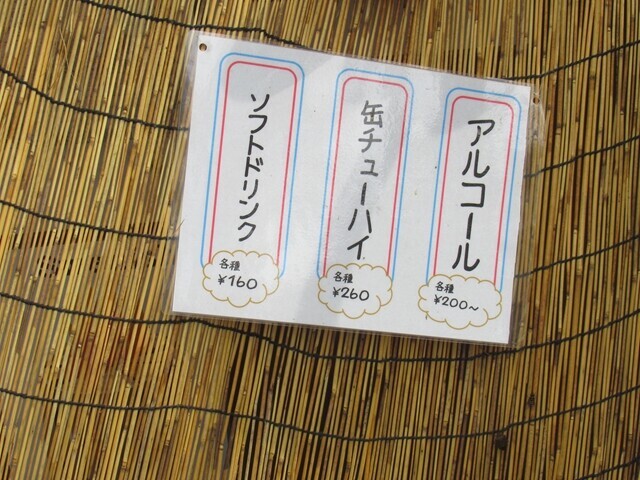 アルコール
各種
¥200~
缶チューハイ
各種
¥260
ソフトドリンク
各種
¥160